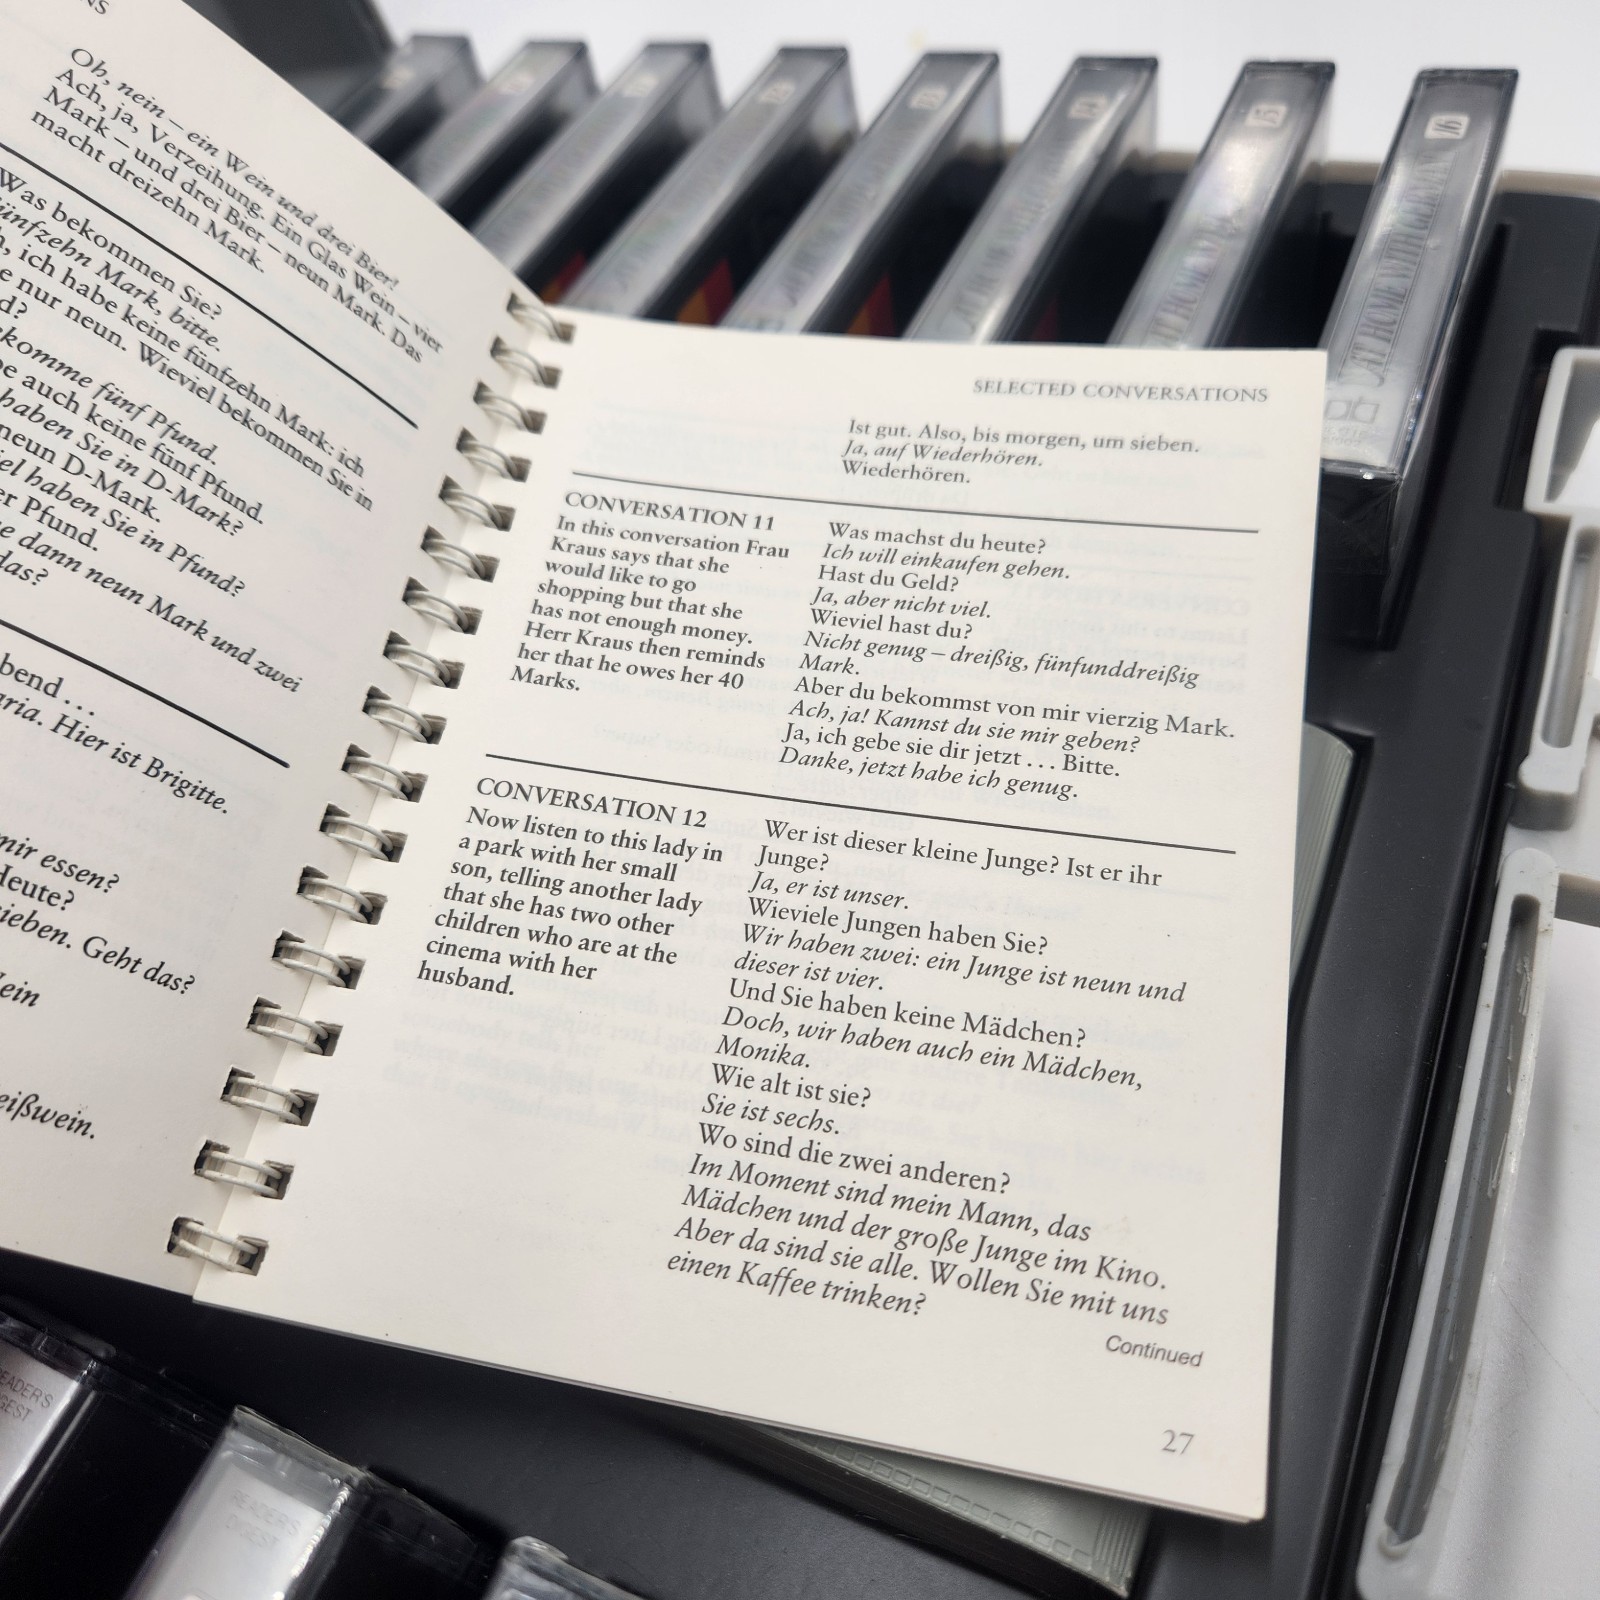 NS
Oh, nein – ein Wein und drei Bier!
Ach, ja, Verzeihung. Ein Glas Wein – vier
Mark – und drei Bier – neun Mark. Das
macht dreizehn Mark.
Was bekommen Sie?
fünfzehn Mark, bitte.
ich habe keine fünfzehn Mark: ich
nur neun. Wieviel bekommen Sie in
komme fünf Pfund.
auch keine fünf Pfund.
haben Sie in D-Mark?
neun D-Mark.
haben Sie in Pfund?
Pfund.
dann neun Mark und zwei
das?
bend ...
aria. Hier ist Brigitte.
mir essen?
Heute?
sieben. Geht das?
ein
eißwein.
SELECTED CONVERSATIONS
Ist gut. Also, bis morgen, um sieben.
Ja, auf Wiederhören.
Wiederhören.
CONVERSATION 11
In this conversation Frau
Kraus says that she
would like to go
shopping but that she
has not enough money.
Herr Kraus then reminds
her that he owes her 40
Marks.
Was machst du heute?
Ich will einkaufen gehen.
Hast du Geld?
Ja, aber nicht viel.
Wieviel hast du?
Nicht genug – dreißig, fünfunddreißig
Mark.
Aber du bekommst von mir vierzig Mark.
Ach, ja! Kannst du sie mir geben?
Ja, ich gebe sie dir jetzt ... Bitte.
Danke, jetzt habe ich genug.
CONVERSATION 12
Now listen to this lady in
a park with her small
son, telling another lady
that she has two other
children who are at the
cinema with her
husband.
Wer ist dieser kleine Junge? Ist er ihr
Junge?
Ja, er ist unser.
Wieviele Jungen haben Sie?
Wir haben zwei: ein Junge ist neun und
dieser ist vier.
Und Sie haben keine Mädchen?
Doch, wir haben auch ein Mädchen,
Monika.
Wie alt ist sie?
Sie ist sechs.
Wo sind die zwei anderen?
Im Moment sind mein Mann, das
Mädchen und der große Junge im Kino.
Aber da sind sie alle. Wollen Sie mit uns
einen Kaffee trinken?
Continued
27
15
AT HOME WITH GERMAN
16
READER'S
DIGEST